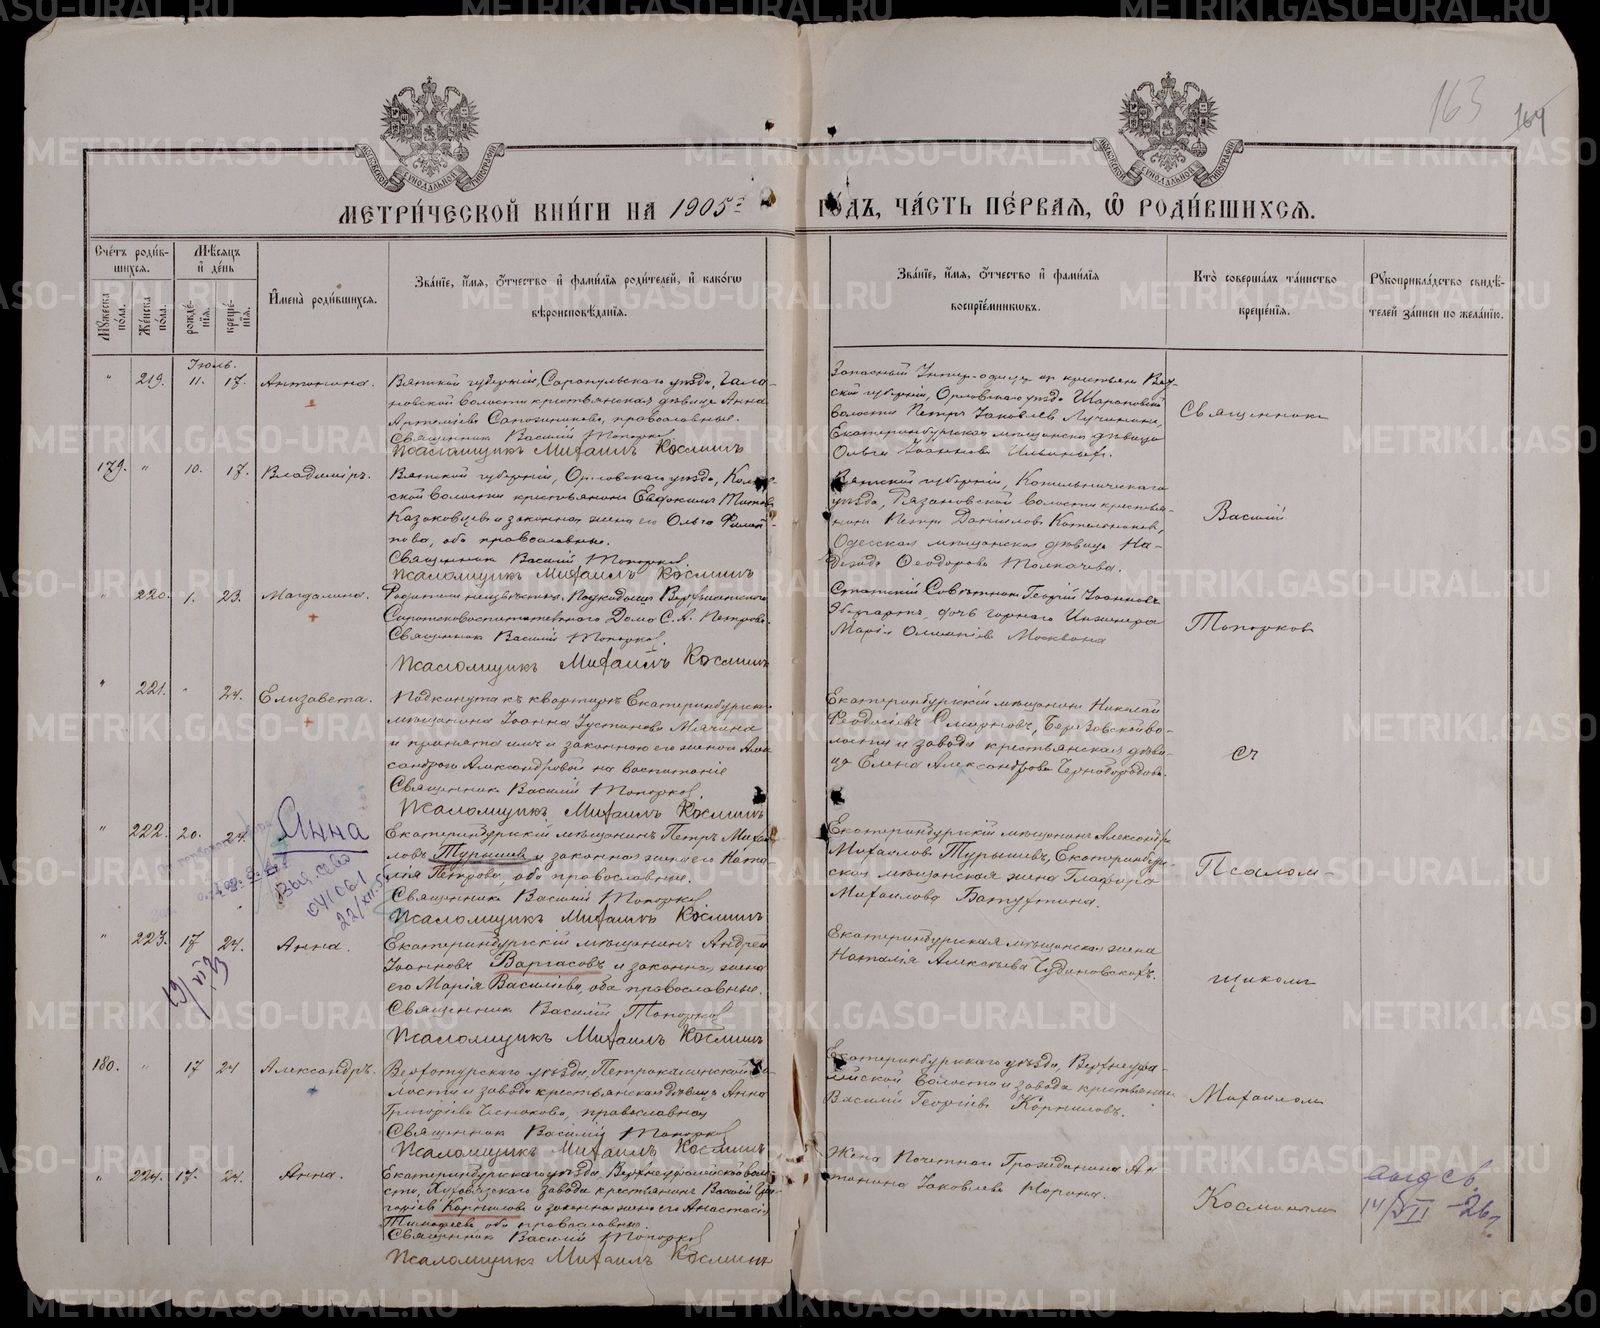 163
164
МОСКОВСКОЙ СѴНОДАЛЬНОЙ ТИПОГРАФІИ
МОСКОВСКОЙ СѴНОДАЛЬНОЙ ТИПОГРАФІИ
МЕТРИ́ЧЕСКОЙ КНИ́ГИ НА 1905й
ГО́ДЪ, ЧА́СТЬ ПЕ́РВАЯ, Ѡ РОДИ́ВШИХСЯ.
Сче́тъ роди́в-
шихся.
Мѣ́сяцъ
и҆ де́нь
Му́жеска по́ла.
Же́нска по́ла.
рожде́-
нїя.
креще́-
нїя.
И҆мена̀ роди́вшихся.
Зва́нїе, и҆́мя, ѻ҆́тчество и҆ фами́лїя роди́телей, и҆ како́гѡ
вѣроисповѣ́данїя.
Зва́нїе, и҆́мя, ѻ҆́тчество и҆ фами́лїя
воспрїе́мникѡвъ.
Кто̀ соверша́лъ та́инство
креще́нїя.
Рꙋкоприкла́дство свидѣ́-
телей за́писи по жела́нїю.
Іюль.
" 219. 11. 17. Антонина.
Вятской губерніи, Сарапульскаго уѣзда, Гала-
новской волости крестьянская дѣвица Анна
Артеміева Сапожникова, православные.
Священникъ Василій Топорков
Псаломщикъ Михаилъ Косминъ
Запасный Унтеръ-офицеръ из крестьянъ Вят-
ской губерніи, Орловскаго уѣзда Шараповской
волости Петръ Іаковлевъ Лучининъ,
Екатеринбургская мѣщанская дѣвица
Ольга Іоаннова Ильиныхъ.
Священникъ
179. " 10. 17. Владиміръ.
Вятской губерніи, Орловскаго уѣзда,
ской волости крестьянинъ Евдокимъ Титовъ
Казаковцевъ и законная жена его Ольга Филип-
пова, оба православные.
Священникъ Василій Топорков
Псаломщикъ Михаилъ Косминъ
Вятской губерніи, Котельническаго
уѣзда, Рязановской волости крестья-
нинъ Петръ Даніиловъ Котельниковъ,
Одесская мѣщанская дѣвица На-
дежда Ѳеодорова Толкачева.
Василій
" 220. 1. 23. Магдалина.
Родители неизвѣстны. Подкидышъ
Сиротовоспитательнаго Дома С. А. Петрова.
Священникъ Василій Топорков
Псаломщикъ Михаилъ Косминъ
Статскій Совѣтникъ Георгій Іоанновъ
дочь горнаго Инженера
Марія Олимпіева Москвина
Топорковъ
" 221. " 24. Елизавета.
Подкинута къ квартирѣ Екатеринбургскаго
мѣщанина Іоанна Іустинова Мячина
и принята имъ и законною его женою Алек-
сандрой Александровой на воспитаніе
Священникъ Василій Топорков
Псаломщикъ Михаилъ Косминъ
Екатеринбургскій мѣщанинъ Николай
Ѳеодосіевъ Смирновъ, Березовской во-
лости и завода крестьянская дѣви-
ца Елена Александрова Чернобородова.
съ
" 222. 20. 24. Анна
Екатеринбургскій мѣщанинъ Петръ Михаи-
ловъ Турышевъ и законная жена его Ната-
лія Петрова, оба православные.
Священникъ Василій Топорков
Псаломщикъ Михаилъ Косминъ
Екатеринбургскій мѣщанинъ Александръ
Михаиловъ Турышевъ, Екатеринбург-
ская мѣщанская жена Глафира
Михаилова Батухтина.
Псалом-
" 223. 17 24. Анна.
Екатеринбургскій мѣщанинъ Андрей
Іоанновъ Варгасовъ и законная жена
его Марія Василіева, оба православные.
Священникъ Василій Топорков
Псаломщикъ Михаилъ Косминъ
Екатеринбургская мѣщанская жена
Наталія Алексѣева Чудиновскихъ.
щикомъ
180. " 17 24 Александръ.
Верхотурскаго уѣзда, Петрокаменской во-
лости и завода крестьянская дѣвица Анна
Григоріева Чеснокова, православная
Священникъ Василій Топорков
Псаломщикъ Михаилъ Косминъ
Екатеринбургскаго уѣзда, Верхнеуфа-
лейской волости и завода крестьянинъ
Василій Георгіевъ Корниловъ.
Михаиломъ
" 224. 17. 24. Анна.
Екатеринбургскаго уѣзда, Верхнеуфалейской воло-
сти, завода крестьянинъ Василій Геор-
гіевъ Корниловъ и законная жена его Анастасія
Тимофеева, оба православные.
Священникъ Василій Топорков
Псаломщикъ Михаилъ Косминъ
Жена Почетнаго Гражданина Ан-
тонина Іаковлева
Косминымъ
выд св
14/XII -26г.
METRIKI.GASO-URAL.RU